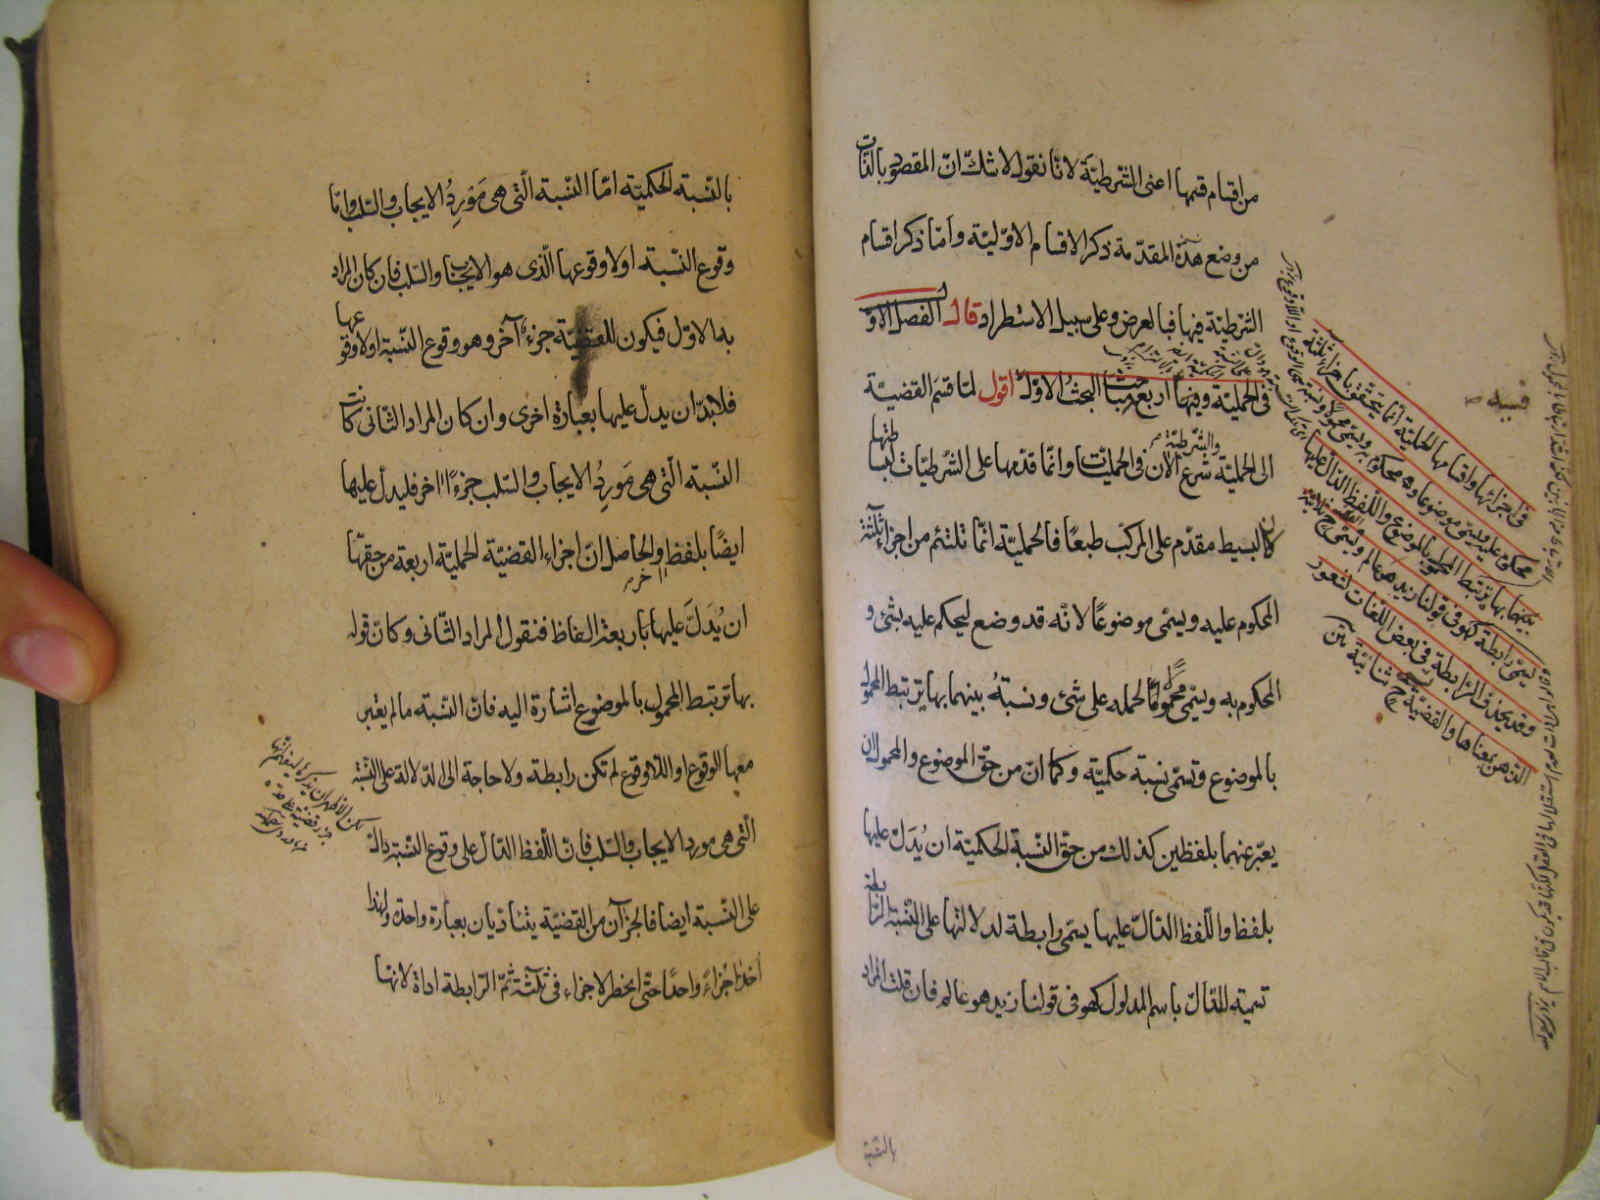 من اقسام قسمها اعنى الشرطيّة لانّا نقول لا شكّ انّ المقصود بالذات
من وضع هذه المقدّمة ذكر الاقسام الاوّليّة وامّا ذكر اقسام
الشرطيّة فيها فبالعرض وعلى سبيل الاستطراد قال الفصل الاول
فى الحمليّة وفيها اربع مباحث البحث الاوّل اقول لمّا قسّم القضيّة
الى الحمليّة والشرطيّة شرع الآن فى الحمليّات وانّما قدّمها على الشرطيّات لبساطتها
فانّ البسيط مقدّم على المركّب طبعًا فالحمليّة انّما تلتئم من اجزاء ثلثة
المحكوم عليه ويسمّى موضوعًا لانّه قد وضع ليحكم عليه بشئ و
المحكوم به ويسمّى محمولًا لحمله على شئ ونسبةٌ بينهما بها يرتبط المحمول
بالموضوع وتسمّى نسبة حكميّة وكما انّ من حقّ الموضوع والمحمول ان
يعبّر عنهما بلفظين كذلك من حقّ النّسبة الحكميّة ان يُدَلّ عليها
بلفظ واللّفظ الدّالّ عليها يسمّى رابطة لدلالتها على النّسبة الرّابطة
تسمية للدّالّ باسم المدلول كهو فى قولنا زيد هو عالم فان قلت المراد
بالنسبة
فى اجزائها واقسامها الحمليّة انّما يتحقق باجزاء ثلثة
محكوم عليه ويسمّى موضوعا ومحكوم به ويسمّى محمولا ونسبة
بينهما بها يرتبط المحمول بالموضوع واللّفظ الدّالّ عليها
يسمّى رابطة كهو فى قولنا زيد هو عالم وتسمّى القضيّة ح ثلاثيّة
وقد يحذف الرّابطة فى بعض اللغات لشعور
الذهن بمعناها والقضيّة تسمّى ح ثنائيّة
بالنّسبة الحكميّة امّا النّسبة الّتى هى مَورِدُ الايجاب والسّلب وامّا
وقوع النّسبة او لا وقوعها الّذى هو الايجاب والسّلب فان كان المراد
بها الاوّل فيكون للقضيّة جزءٌ آخر وهو وقوع النّسبة او لا وقوعها
فلا بدّ ان يدلّ عليها بعبارة اخرى وان كان المراد الثانى كانت
النّسبة الّتى هى مَورِدُ الايجاب والسّلب جزءًا آخر فليدلّ عليها
ايضًا بلفظ آخر والحاصل انّ اجزاء القضيّة الحمليّة اربعة من حقّها
ان يُدَلّ عليها باربعة الفاظ فنقول المراد الثّانى وكان قوله
بها يرتبط المحمول بالموضوع اشارة اليه فانّ النّسبة ما لم يعتبر
معها الوقوع او اللّاوقوع لم تكن رابطة ولا حاجة الى الدّلالة على النّسبة
الّتى هى مورد الايجاب والسّلب فانّ اللّفظ الدّالّ على وقوع النّسبة دالّ
على النّسبة ايضا فالجزآن من القضيّة يتأدّيان بعبارة واحدة ولهذا
اخذا جزءً واحدًا حتّى انحصر الاجزاء فى ثلثة ثمّ الرّابطة اداة لانّها